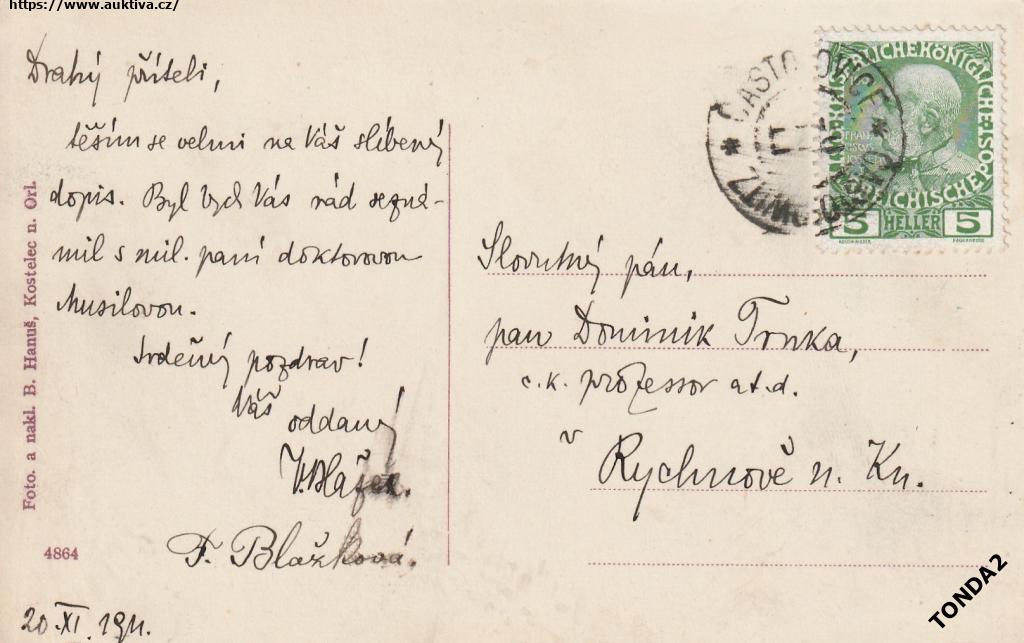 https://www.auktiva.cz/
Drahý příteli,
těším se velmi na Váš slíbený
dopis. Byl bych Vás rád sezná-
mil s mil. paní doktorovou
Musilovou.
Srdečný pozdrav!
Váš
oddaný
V. Blažek.
F. Blažková.
20. XI. 1911.
Foto. a nakl. B. Hanuš, Kostelec n. Orl.
4864
KAISERLICHE KÖNIGLICHE
ÖSTERREICHISCHE POST
5 HELLER 5
Slovutný pán,
pan Dominik Trnka,
c. k. professor a t. d.
v Rychnově n. Kn.
TONDA2